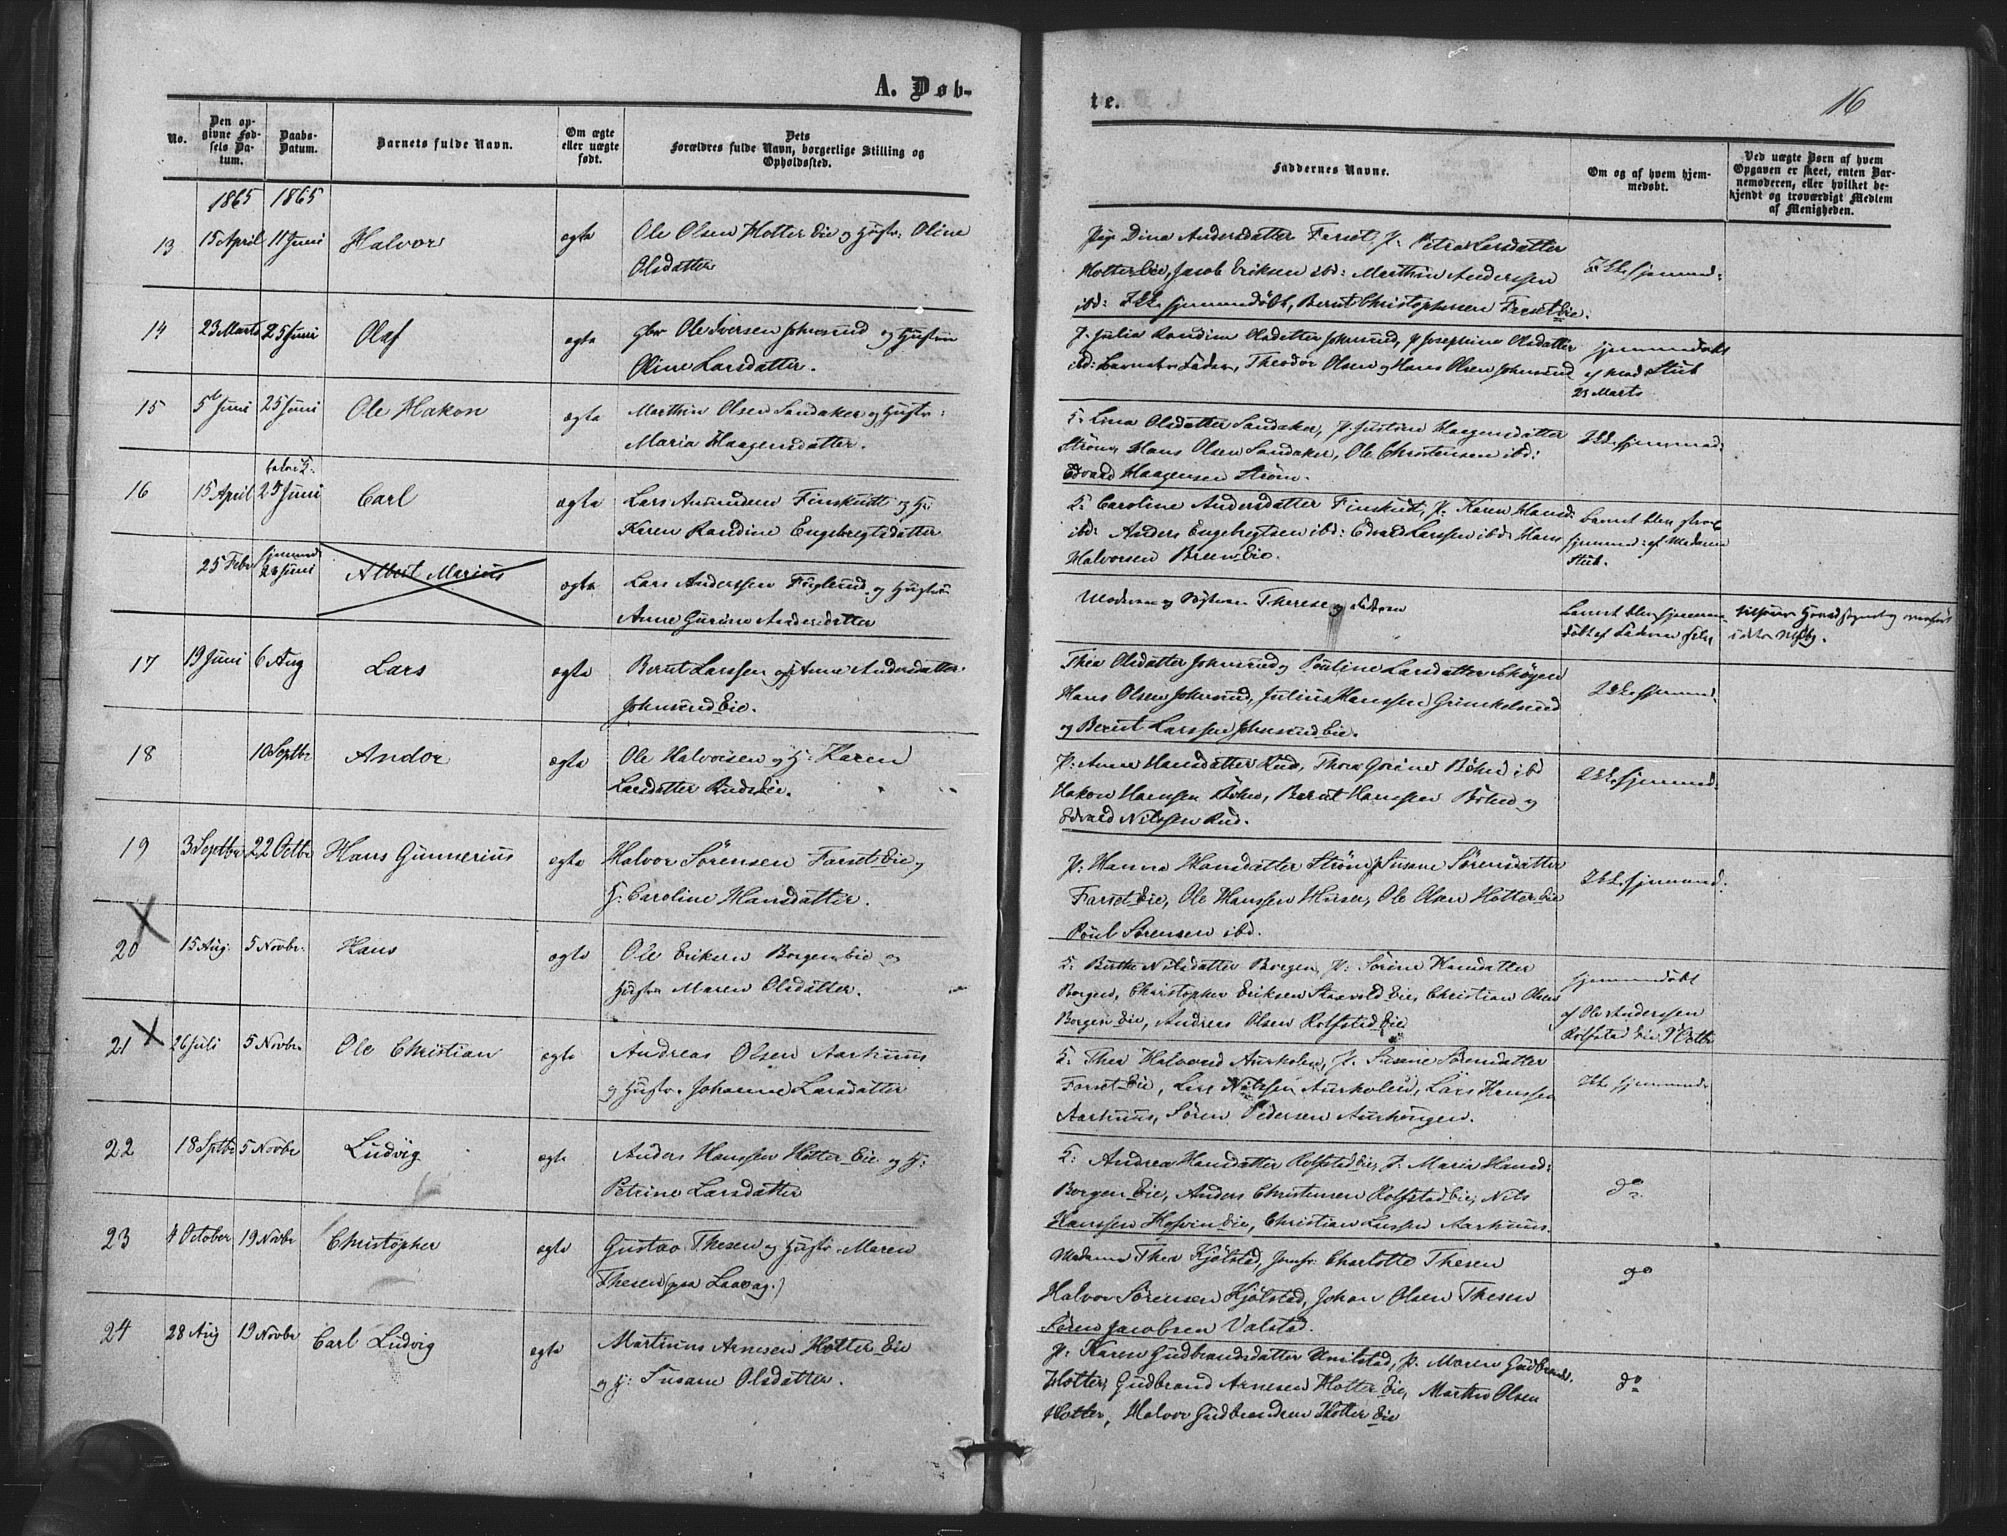 A. Døb-
te.
16
No.
Den op-
givne Fød-
sels Da-
tum.
Daabs-
Datum.
Barnets fulde Navn.
Om ægte
eller uægte
født.
Dets
Forældres fulde Navn, borgerlige Stilling og
Opholdssted.
Faddernes Navne.
Om og af hvem hjem-
medøbt.
Ved uægte Børn af hvem
Opgaven er skeet, enten Bar-
nemoderen, eller hvilket be-
kjendt og troværdigt Medlem
af Menigheden.
1865 1865
13 15 April 11 Juni Halvor ægte Ole Olsen Hotter Eie og Hustr: Oline
Olsdatter
Pige Dina Andersdatter Farset, P. Petra Larsdatter
Hotter Eie, Jacob Eriksen ibd: Marthin Anderssen
ibd: Ikke hjemmedøbt, Bernt Christophersen Farset Eie.
Ikke hjemmed:
14 23 Marts 25 Juni Olaf ægte Gbr Ole Iversen Johnsrud og Hustru
Oline Larsdatter.
P. Julia Randine Olsdatter Johnsrud, P Josephine Olsdatter
ibd: Barnets Fader, Theodor Olsen og Hans Olsen Johnsrud
hjemmedøbt
af Mad Stub
23 Marts
15 5te Juni 25 Juni Ole Hakon ægte Marthin Olsen Sandaker og Hustr:
Maria Haagensdatter.
K. Lina Olsdatter Sandaker, P Justine Haagensdatter
Strøm, Hans Olsen Sandaker, Ole Christensen ibd:
Edvard Haagensen Strøm.
Ikke hjemmed:
16 15 April 25 Juni Carl ægte Lars Amundsen Finskudt og H:
Karen Randine Engebregtsdatter
K. Caroline Andersdatter Finskudt, P. Karen Hansd:
ibd: Anders Engebregtsen ibd: Edvard Larssen ibd: Hans
Halvorsen Bruun Eie.
Barnet blev strax
hjemmed: af Madame
Stub.
25 Febr hjemmed:
23 Juni Albert Marius ægte Lars Anderssen Fuglerud og Hustru
Anne Gurine Andersdatter
Moderen og Therese og Faderen
Barnet blev hjemme
døbt af Faderen selv
17 19 Juni 6 Aug Lars ægte Bernt Larssen og Anne Andersdatter
Johnsrud Eie.
Thea Olsdatter Johnsrud og Pouline Larsdatter Skøyen
Hans Olsen Johnsrud, Julius Hanssen Grinkelsrud
og Bernt Larssen Johnsrud Eie.
Ikke hjemmed.
18 10 Septbr Andor ægte Ole Halvorsen og H: Karen
Larsdatter Ruds Eie.
P: Anne Hansdatter Rud, Thora Gorine Bøhn ibd
Hakon Hansen Bøhn, Bernt Hanssen Bøhn og
Edvard Nilssen Rud.
Ikke hjemmed:
19 3 Septbr 22 Octbr Hans Gunnerius ægte Halvor Sørensen Farset Eie og
H: Caroline Hansdatter.
P: Hanna Hansdatter Strøm, P Susane Sørensdatter
Farset Eie, Ole Hanssen Huser, Ole Olsen Hotter Eie
Poul Sørensen ibd.
Ikke hjemmed.
20 15 Aug. 5 Novbr. Hans ægte Ole Eriksen Borgen Eie og
Hustru Maren Olsdatter.
K: Berthe Nilsdatter Borgen, P: Sørine Hansdatter
Borgen, Christopher Eriksen Eie, Christian Olsen
Borgen Eie, Andreas Olsen Rolfstad Eie
hjemmedøbt
af Ole Anderssen
Rolfstad Eie 9 Octbr
21 26 Juli 5 Novbr. Ole Christian ægte Andreas Olsen Aarhuus
og Hustr. Johanne Larsdatter
K: Thea Halvorsd Aurkolen, P. Susane Sørensdatter
Farset Eie, Lars Nilssen Aurkolen, Lars Hanssen
Aarhuus, Søren Pedersen Aurhaugen.
Ikke hjemmed:
22 18 Sptbr 5 Novbr Ludvig ægte Anders Hanssen Hotter Eie og H:
Petrine Larsdatter
K: Andrea Hansdatter Rolfstad Eie, P. Maria Hansd:
Borgen Eie, Anders Christensen Rolfstad Eie, Nils
Hanssen Hofvin Eie, Christian Larssen Aarhuus.
do
23 4 October 19 Novbr Christopher ægte Gustav Thesen og Hustr. Maren
Thesen (paa Laavag.)
Madame Thea Kjølstad, Jomfr. Charlotte Thesen
Halvor Sørensen Kjølstad, Johan Olsen Thesen
Søren Jacobsen Valstad.
do
24 28 Aug 19 Novbr Carl Ludvig ægte Martinus Arnesen Hotter Eie
og H: Susane Olsdatter.
P: Karen Gudbrandsdatter Unilstad, P. Maren Gudbrands.
Hotter, Gudbrand Arnesen Hotter Eie, Marthin Olsen
Hotter, Halvor Gudbrandsen Hotter Eie
do